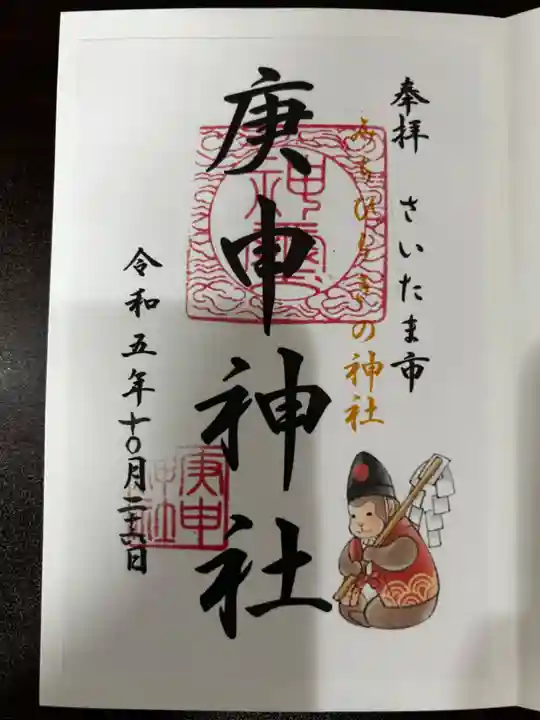 奉拝 さいたま市
みちひらきの神社
庚申神社
庚申
神社
令和五年十〇月二十六日